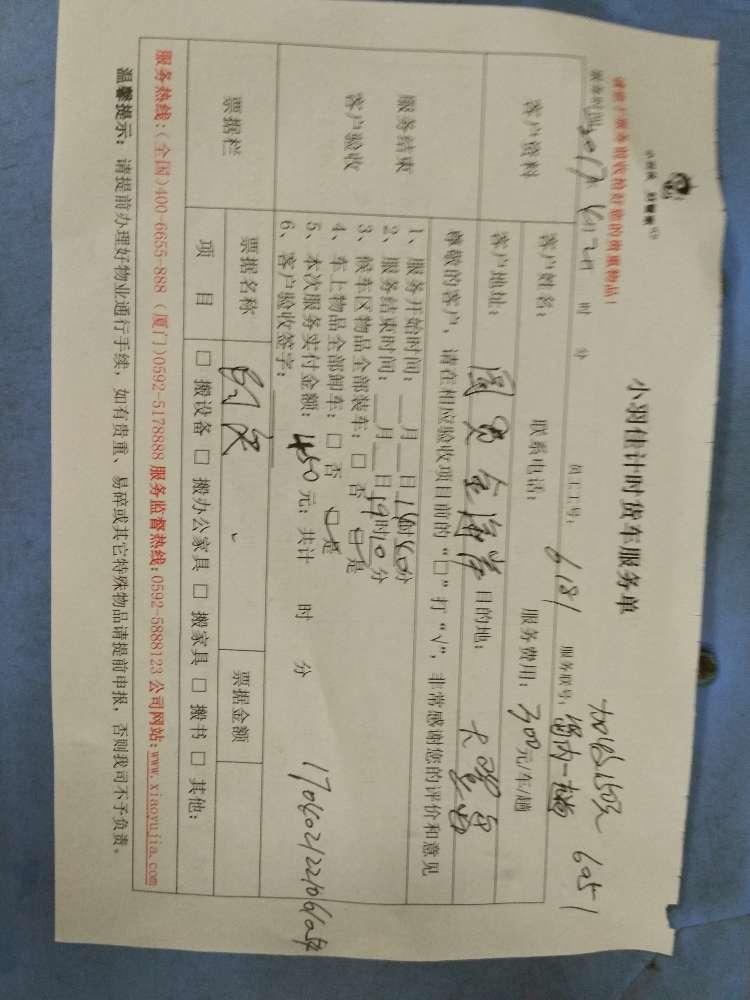 小羽佳计时货车服务单
请您于服务前收拾好您的贵重物品!
服务时间:2017年6月2日 时 分 员工工号:681 服务联号: 6051
客户资料
客户姓名: 联系电话: 服务费用:300元/车/趟
客户地址: 金海岸 目的地:
服务结束
客户验收
尊敬的客户,请在相应验收项目前的“□”打“√”,非常感谢您的评价和意见
1、服务开始时间:__月__日 时 分
2、服务结束时间:__月__日19时10分
3、候车区物品全部装车:□ 否 □ 是
4、车上物品全部卸车:□ 否 □ 是
5、本次服务实付金额:450元;共计 时 分
6、客户验收签字:
票据栏
票据名称 票据金额
项 目 □ 搬设备 □ 搬办公家具 □ 搬家具 □ 搬书 □ 其他:
服务热线:(全国)400-6655-888 (厦门)0592-5178888 服务监督热线:0592-5888123 公司网站:www.xiaoyujia.com
温馨提示:请提前办理好物业通行手续,如有贵重、易碎或其它特殊物品请提前申报,否则我司不予负责。